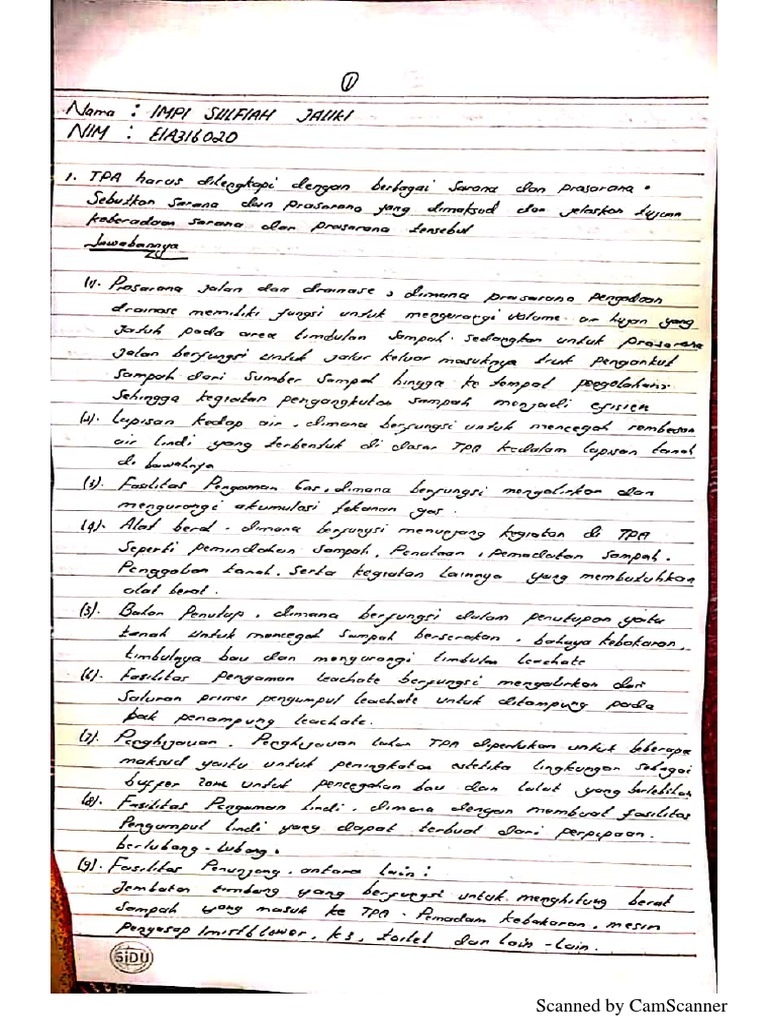 ①
Nama : IMPI SULFIAH JAUKI
NIM : E1A316020
1. TPA harus dilengkapi dengan berbagai sarana dan prasarana.
Sebutkan sarana dan prasarana yang dimaksud dan jelaskan tujuan
keberadaan sarana dan prasarana tersebut
Jawabannya
(1). Prasarana jalan dan drainase, dimana prasarana pengadaan
drainase memiliki fungsi untuk mengurangi volume air hujan yang
jatuh pada area timbulan sampah. sedangkan untuk prasarana
jalan berfungsi untuk jalur keluar masuknya truk pengankut
sampah dari sumber sampah hingga ke tempat pegolahan.
Sehingga kegiatan pengangkutan sampah menjadi efisien
(2). Lapisan kedap air, dimana berfungsi untuk mencegah rembesan
air lindi yang terbentuk di dasar TPA kedalam lapisan tanah
di bawahnya
(3). Fasilitas Pengaman Gas, dimana berfungsi mengalirkan dan
mengurangi akumulasi tekanan gas.
(4). Alat berat. dimana berfungsi menunjang kegiatan di TPA
Seperti pemindahan sampah, Penataan, pemadatan sampah.
Penggalian tanah. Serta kegiatan lainnya yang membutuhkan
alat berat.
(5). Bahan Penutup, dimana berfungsi dalam penutupan yaitu
tanah untuk mencegah sampah berserakan, bahaya kebakaran,
timbulnya bau dan mengurangi timbulan leachate
(6). Fasilitas pengaman leachate berfungsi mengalirkan dari
Saluran primer pengumpul leachate untuk ditampung pada
bak penampung leachate.
(7). Penghijauan. Penghijauan lahan TPA diperlukan untuk beberapa
maksud yaitu untuk peningkatan estetika lingkungan sebagai
buffer zone untuk pencegahan bau dan lalat yang berlebihan
(8). Fasilitas Pengaman lindi, dimana dengan membuat fasilitas
Pengumpul lindi yang dapat terbuat dari perpipaan.
berlubang-lubang.
(9). Fasilitas Penunjang, antara lain:
Jembatan timbang yang berfungsi untuk menghitung berat
sampah yang masuk ke TPA. Pemadam kebakaran, mesin
pengasap (mistblower, k3, toilet dan lain-lain.
SIDU
Scanned by CamScanner